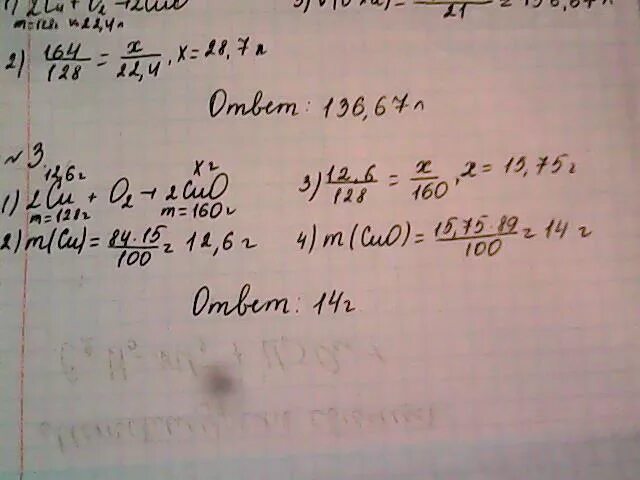 1) 2Cu + O₂ → 2CuO
m=128г V=22,4л
21
= 136,67л
2) 164/128 = x/22,4, x = 28,7 л
Ответ: 136,67 л
№ 3.
12,6г x г
1) 2Cu + O₂ → 2CuO
m=128г m=160г
2) m(Cu) = 84·15/100 = 12,6 г
3) 12,6/128 = x/160, x = 15,75 г
4) m(CuO) = 15,75·89/100 = 14 г
Ответ: 14г